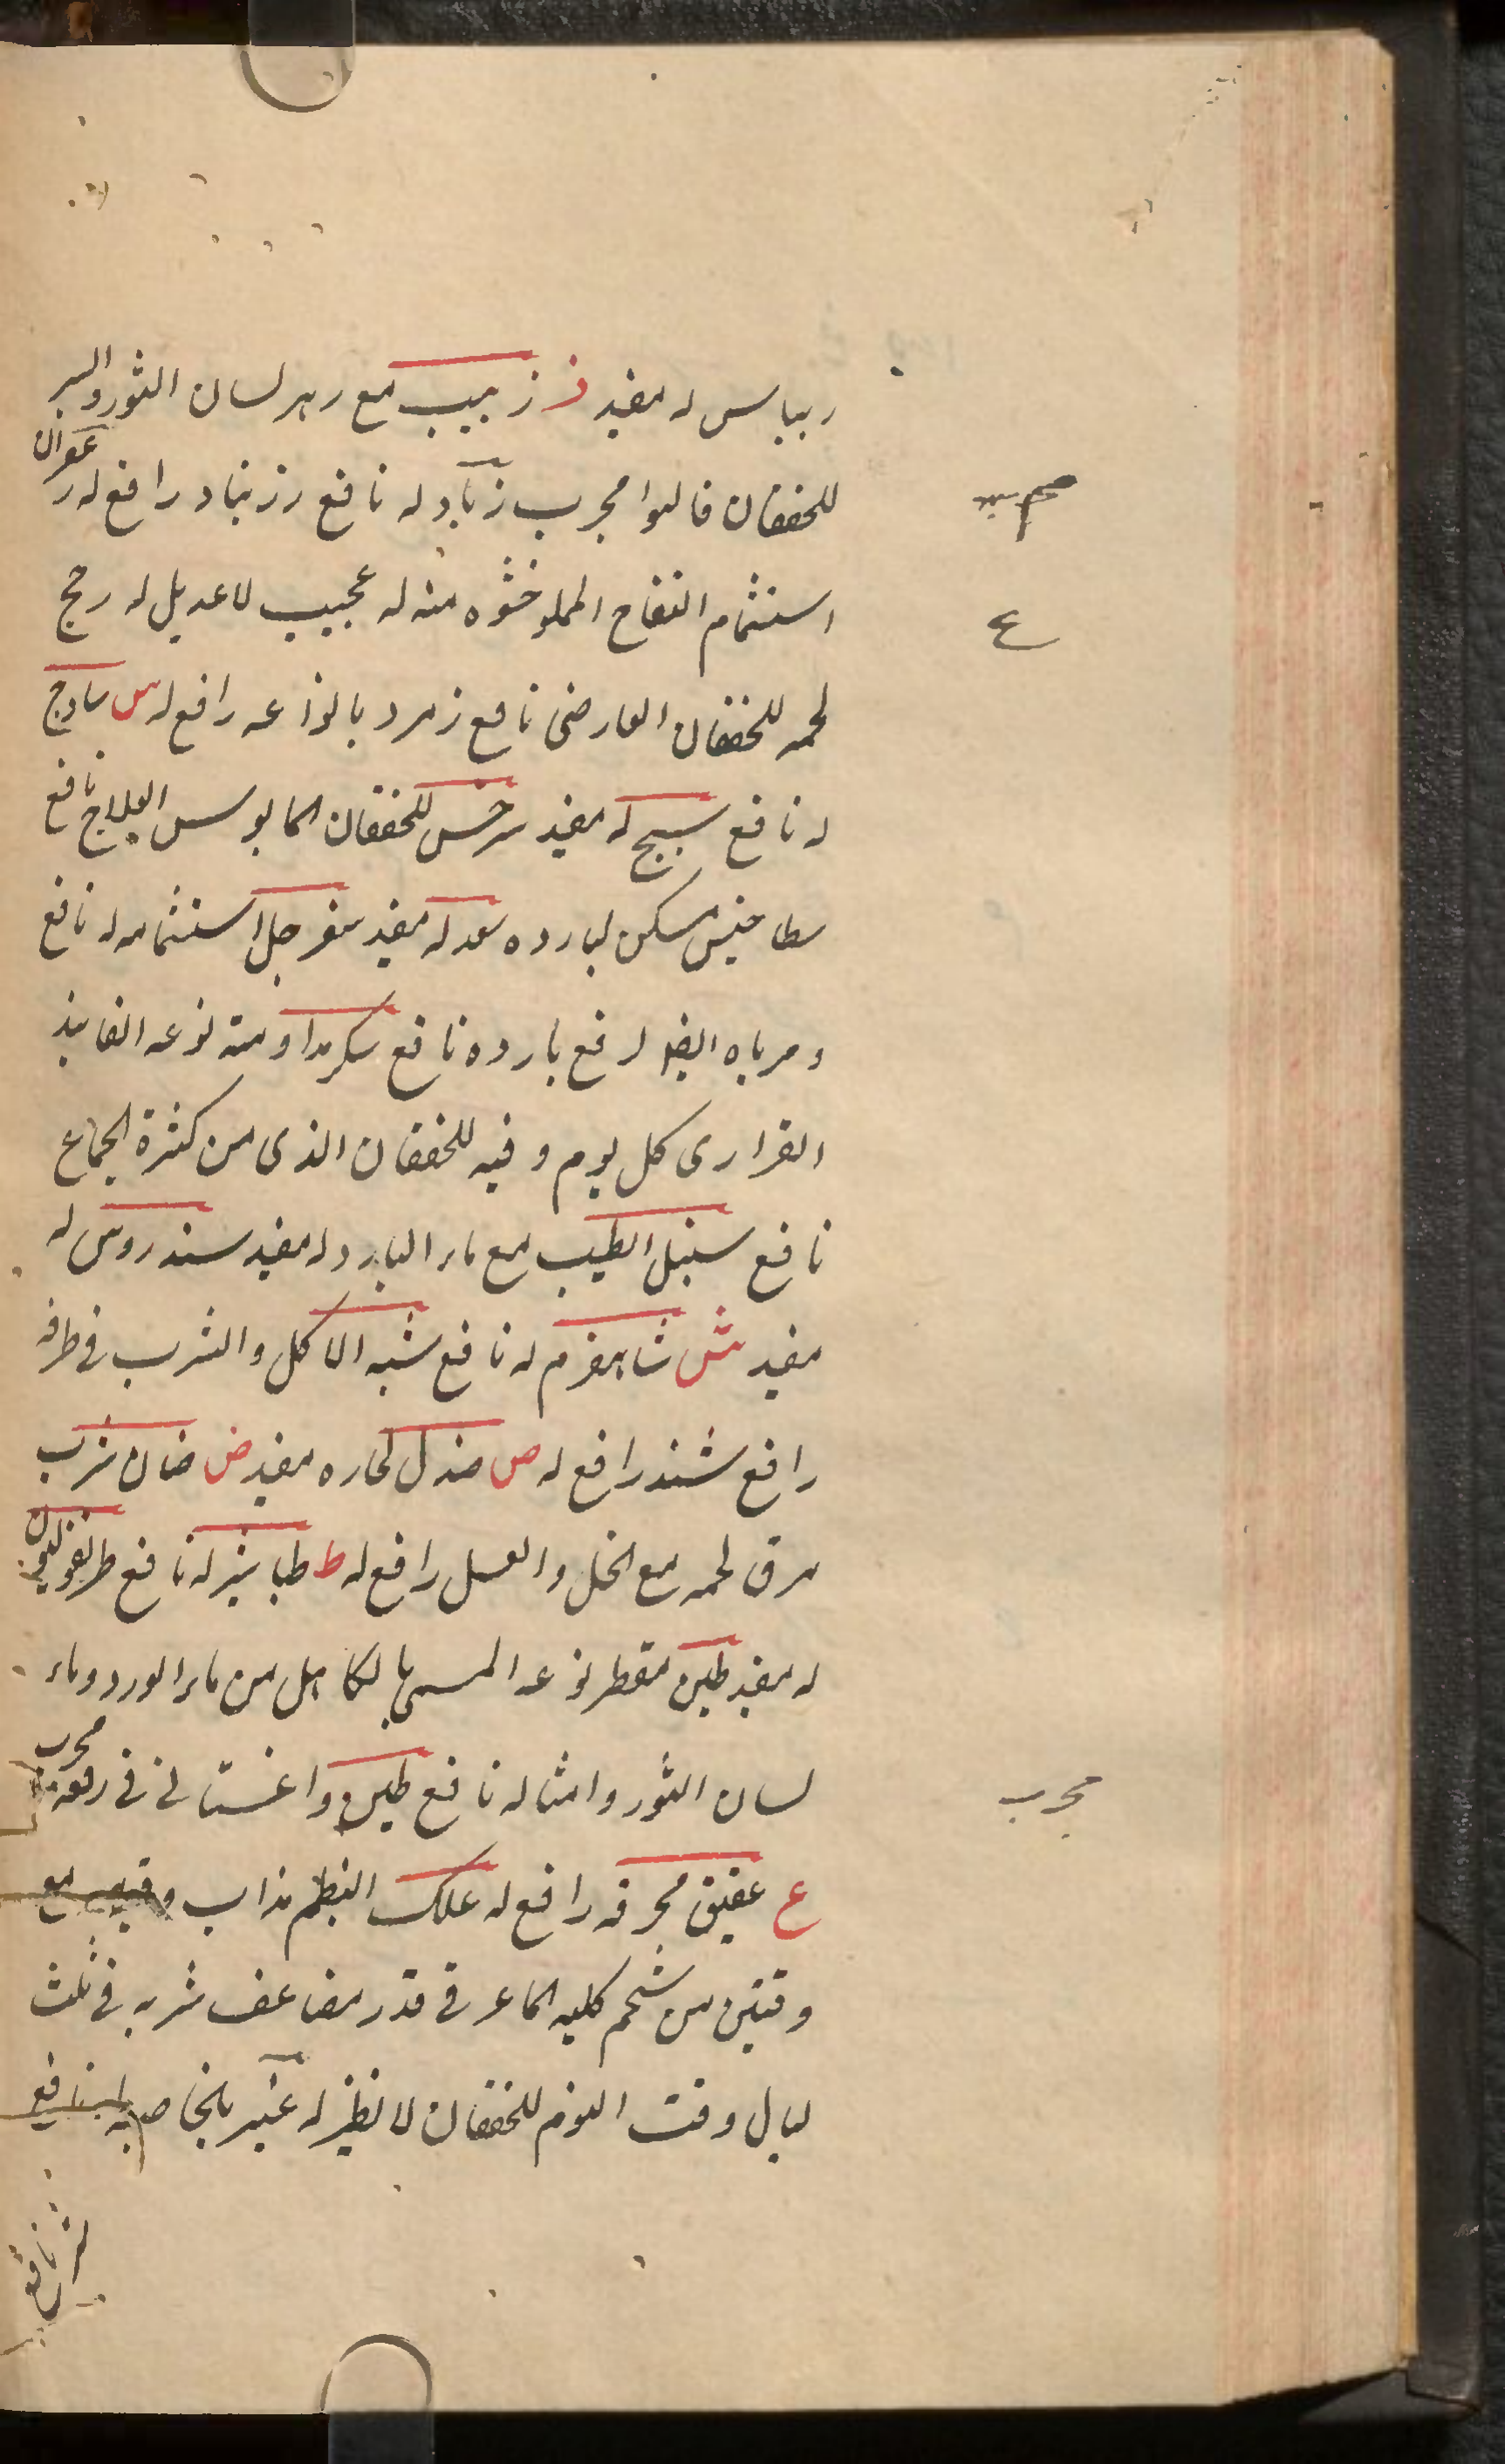 ريباس له مفيد ز زبيب مع زهر لسان الثور والبر
للخفقان قالوا مجرب زباد له نافع زرنباد رافع له زعفران
استشمام التفاح المملو حشوه منه له عجيب لا عديل له زمج
لحمه للخفقان العارضى نافع زمرد بانواعه رافع له س سادج
له نافع سبج له مفيد سرخس للخفقان نافع
مسكن لبارده سعد له مفيد سفرجل استشمامه له نافع
ومرباه ايضا لرفع بارده نافع سكر مداومته نوعه الفانيذ
القزارى كل يوم وقيه للخفقان الذى من كثرة الجماع
نافع سنبل الطيب مع ماء البارد له مفيد سندروس له
مفيد ش شاهسفرم له نافع شبه الاكل والشرب فى ظرفه
رافع شند رافع له ص صندل لحاره مفيد ض ضان شرب
مرق لحمه مع الخل والعسل رافع له ط طباشير له نافع طريفوليون
له مفيد طين مقطر نوعه المسمى بالكامل من ماء الورد وماء
لسان الثور وامثاله نافع طين داغستانى فى رفعه مجرب
ع عقيق محرقه رافع له علك البطم مذاب وقيه مع
وقتين من شحم كليه الماعز فى قدر مضاعف شربه فى ثلث
ليال وقت النوم للخفقان لا نظير له عنبر بالخاصيه له نافع
ع
مجرب